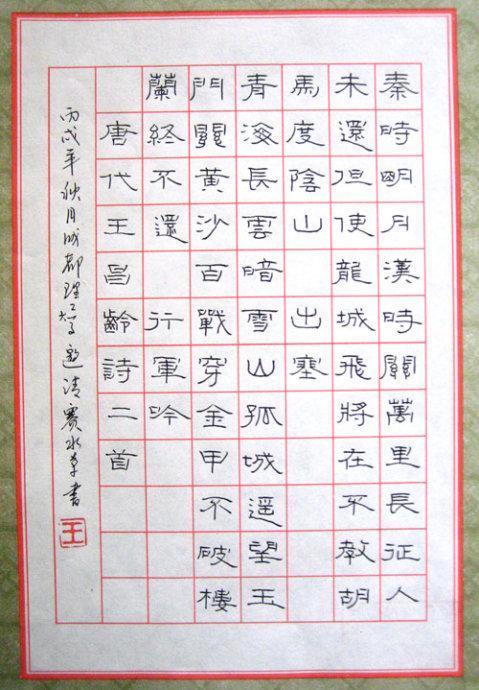 秦時明月漢時關萬里長征人
未還但使龍城飛將在不教胡
馬度陰山 出塞
青海長雲暗雪山孤城遥望玉
門關黃沙百戰穿金甲不破樓
蘭終不還 行軍吟
唐代王昌齡詩二首
丙戌年秋月成都理工大学邀請賽水書
王